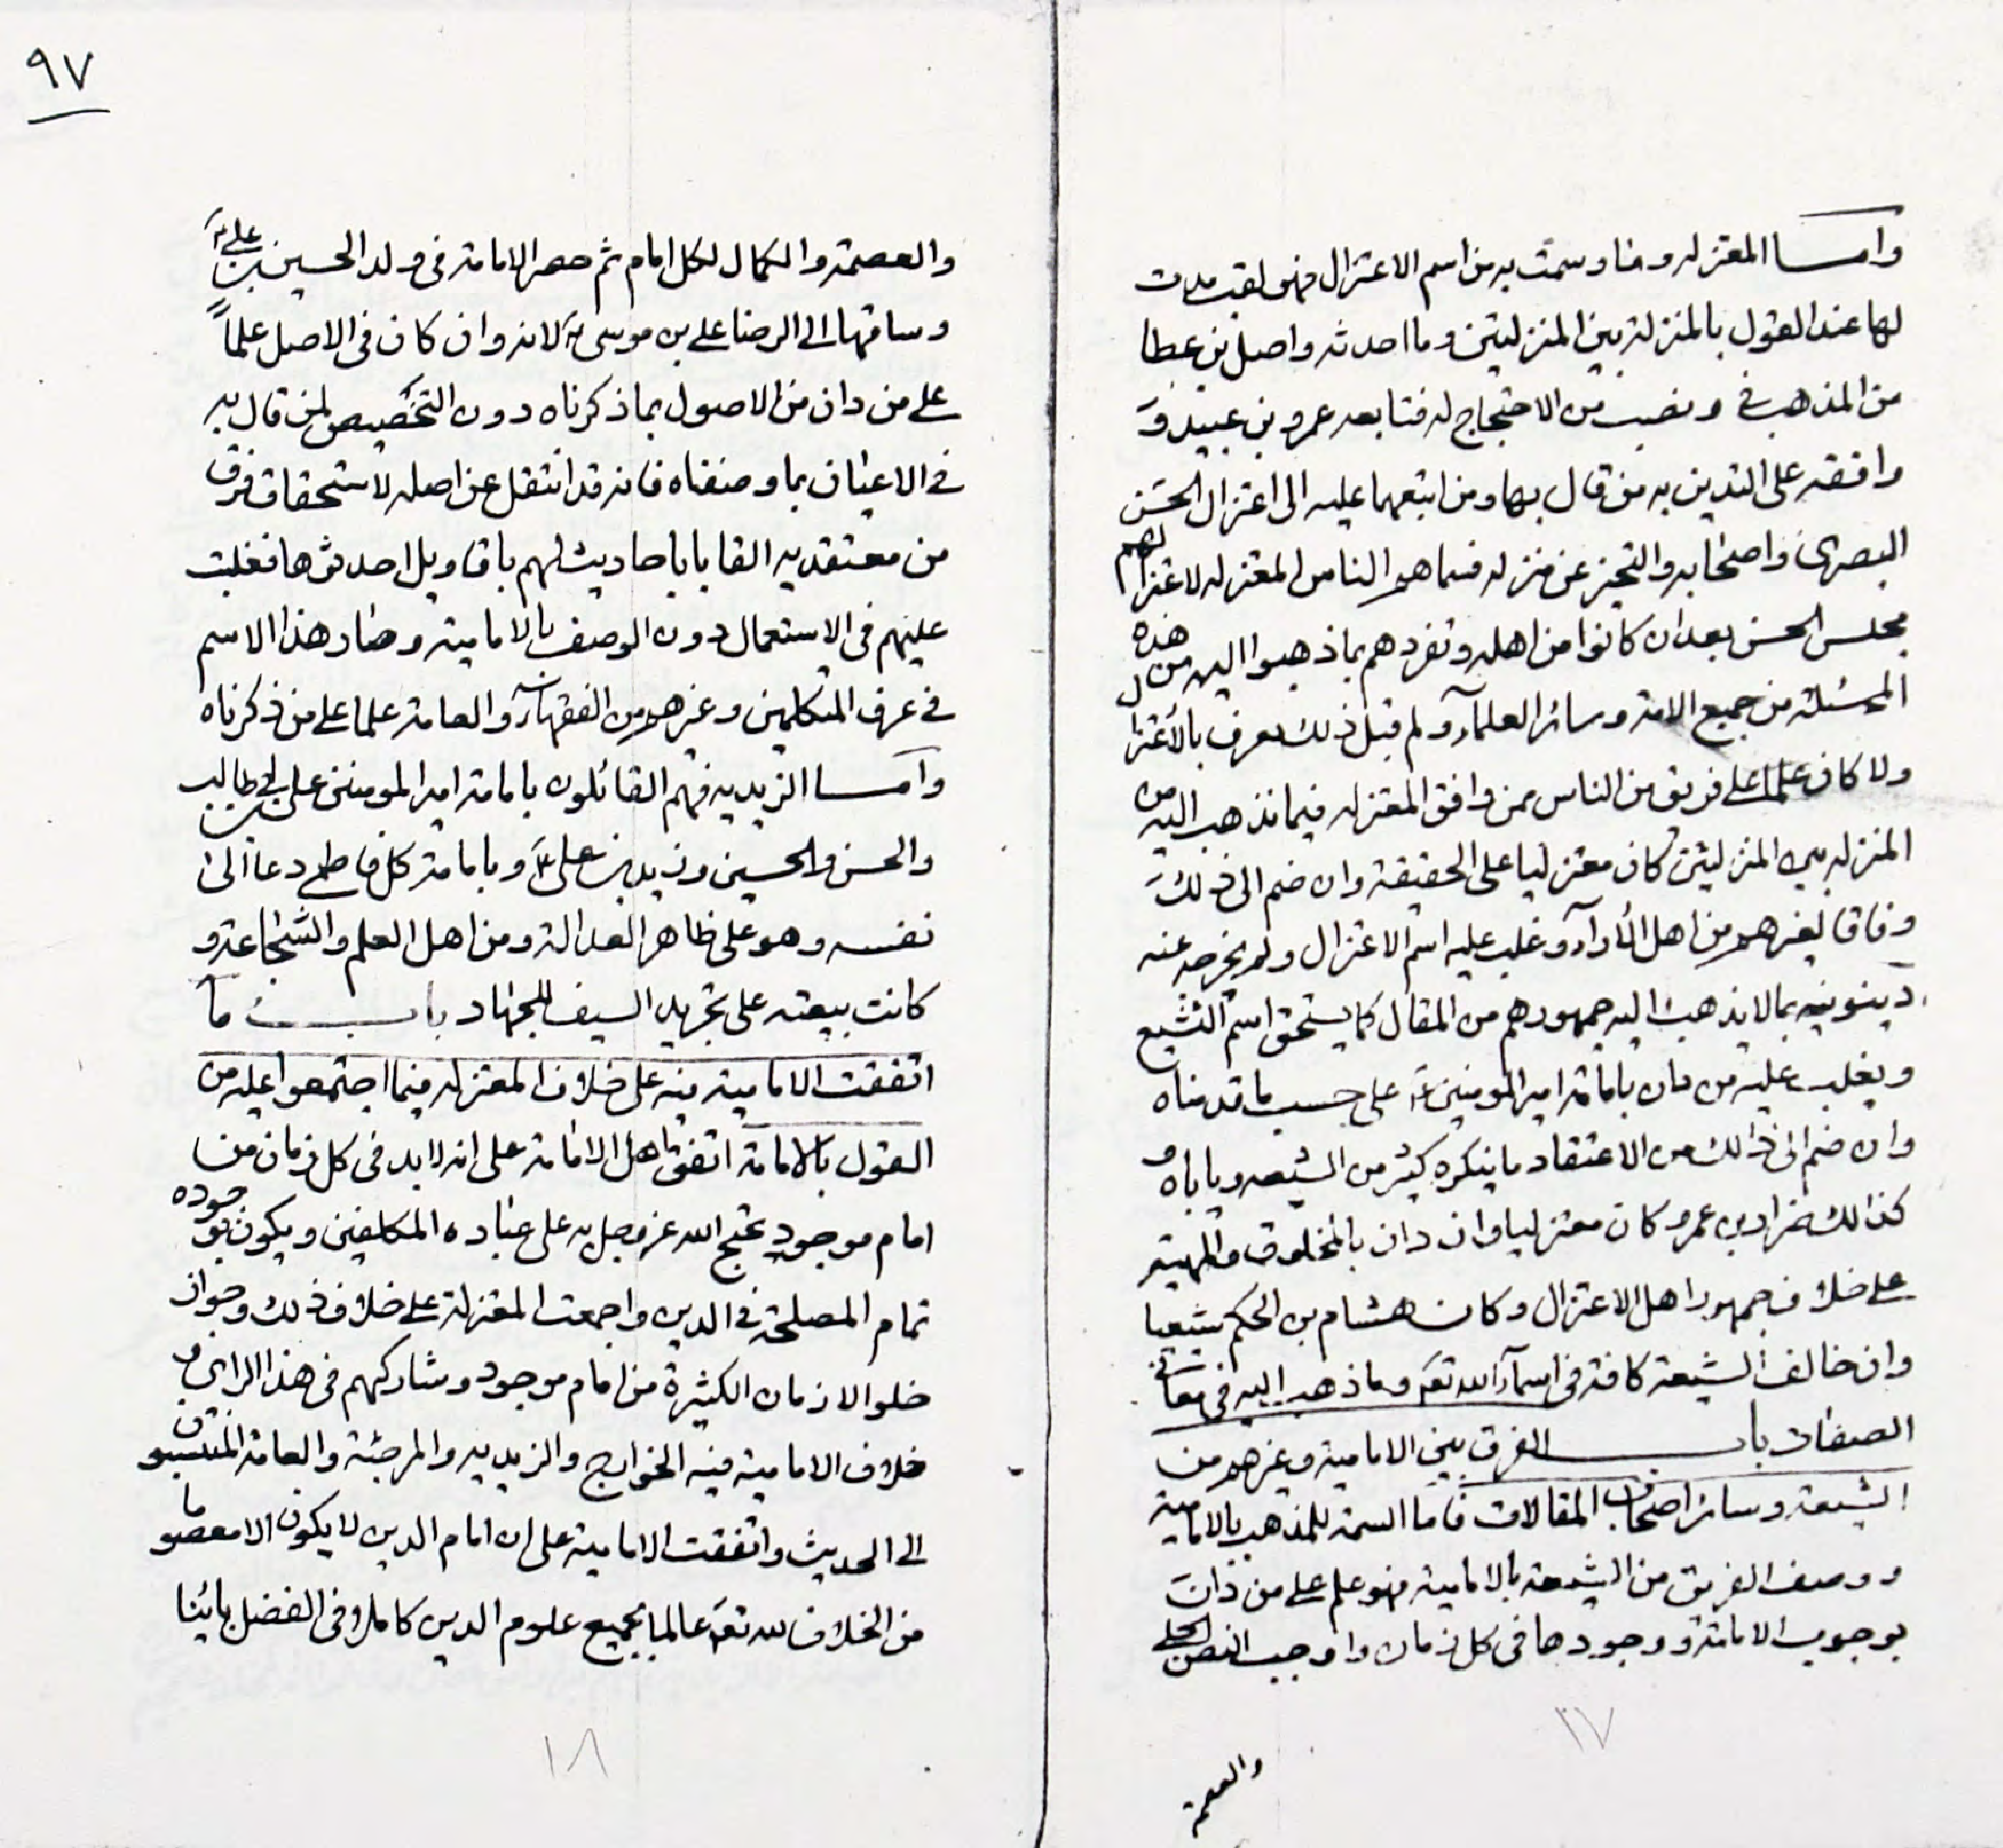 وامــا المعتزله وما وسمت به من اسم الاعتزال فهو لقب حدث
لها عند القول بالمنزلة بين المنزلتين وما احدثه واصل بن عطا
من المذهب في ونصب من الاحتجاج له فتابعه عمرو بن عبيد و
وافقه على التدين به من قال بها ومن اتبعهما عليه الى اعتزال الحسن
البصرى واصحابه والتحيز عن منزله فسماهم الناس المعتزله لاعتزالهم
مجلس الحسن بعد ان كانوا من اهله وتفردهم بما ذهبوا اليه من هذه
المسئلة من جميع الامة وسائر العلمآء ولم قبل ذلك يعرف بالاعتزال
ولا كان علما على فريق من الناس ممن وافق المعتزله فيما تذهب اليه من
المنزله بين المنزلتين كان معتزليا على الحقيقة وان ضم الى ذلك
وفاقا لغيرهم من اهل الأرآء وغلب عليه اسم الاعتزال ولم يخرجه عنه
دينونيه بما لا يذهب اليه جمهورهم من المقال كما يستحق اسم التشيع
ويغلب عليه من دان بامامة امير المومنين ع على حسب ما قدمناه
وان ضم الى ذالك من الاعتقاد ما ينكره كثير من الشيعه وياباه و
كذالك ضرار بن عمرو كان معتزليا وان دان بالمخلوق والمهية
على خلاف جمهور اهل الاعتزال وكان هشام بن الحكم شيعيا
وان خالف الشيعة كافة فى اسمآء الله تعه وما ذهب اليه فى معانى
الصفات بابـــ الفرق بين الامامية وغيرهم من
الشيعة وسائر اصحاب المقالات فاما السمة للمذهب بالامامية
ووصف الفريق من الشيعة بالامامية فهو علم على من دان
بوجوب الامامة ووجودها فى كل زمان واوجب النص الجلى
والعصمة
١٧
٩٧
والعصمة والكمال لكل امام ثم حصر الامامة فى ولد الحسين بن على ع
وساقها الى الرضا على بن موسى ع لانه وان كان فى الاصل علماً
على من دان من الاصول بما ذكرناه دون التخصيص لمن قال به
فى الاعيان بما وصفناه فانه قد انتقل عن اصله لاستحقاق فرق
من معتقديه القابا باحاديث لهم باقاويل احدثوها فغلبت
عليهم فى الاستعمال دون الوصف بالامامية وصار هذا الاسم
فى عرف المتكلمين وغيرهم من الفقهآء والعامة علما على من ذكرناه
وامــا الزيديه فهم القائلون بامامة امير المومنين على بن ابى طالب
والحسن والحسين وزيد بن على ع وبامامة كل فاطمى دعا الى
نفسه وهو على ظاهر العدالة ومن اهل العلم والشجاعة و
كانت بيعته على تجريد السيف للجهاد بابـــ ما
اتفقت الامامية فيه على خلاف المعتزله فيما اجتمعوا عليه من
القول بالامامة اتفق اهل الامامة على انه لا بد فى كل زمان من
امام موجود تحتج الله عز وجل به على عباده المكلفين ويكون بوجوده
تمام المصلحة فى الدين واجمعت المعتزلة على خلاف ذلك وجواز
خلو الازمان الكثيرة من امام موجود وشاركهم فى هذا الراى و
خلاف الامامية فيه الخوارج والزيديه والمرجئة والعامة المنتسبون
الى الحديث واتفقت الامامية على ان امام الدين لا يكون الا معصوما
من الخلاف لله تعه عالما بجميع علوم الدين كاملا فى الفضل باينا
١٨